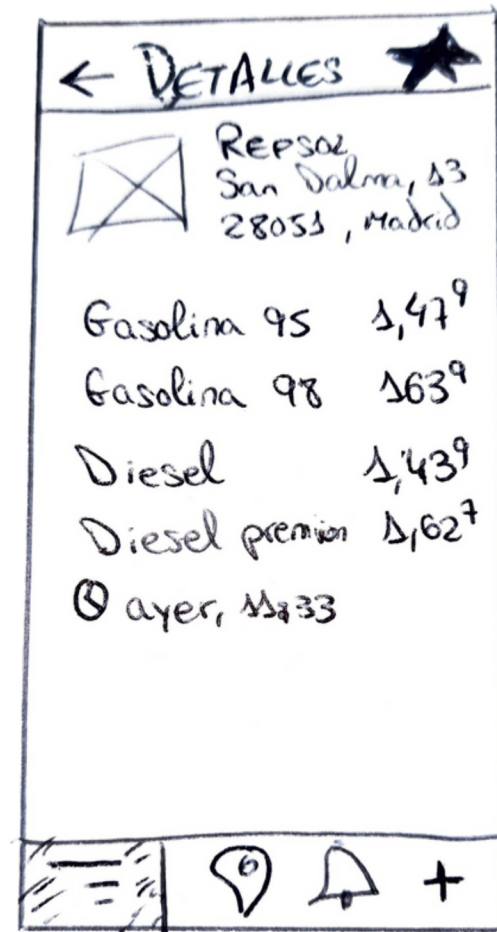 ← DETALLES
REPSOL
San Dalma, 13
28051, Madrid
Gasolina 95 1,47⁹
Gasolina 98 163⁹
Diesel 1,43⁹
Diesel premion 1,62⁷
ayer, 11:33
+